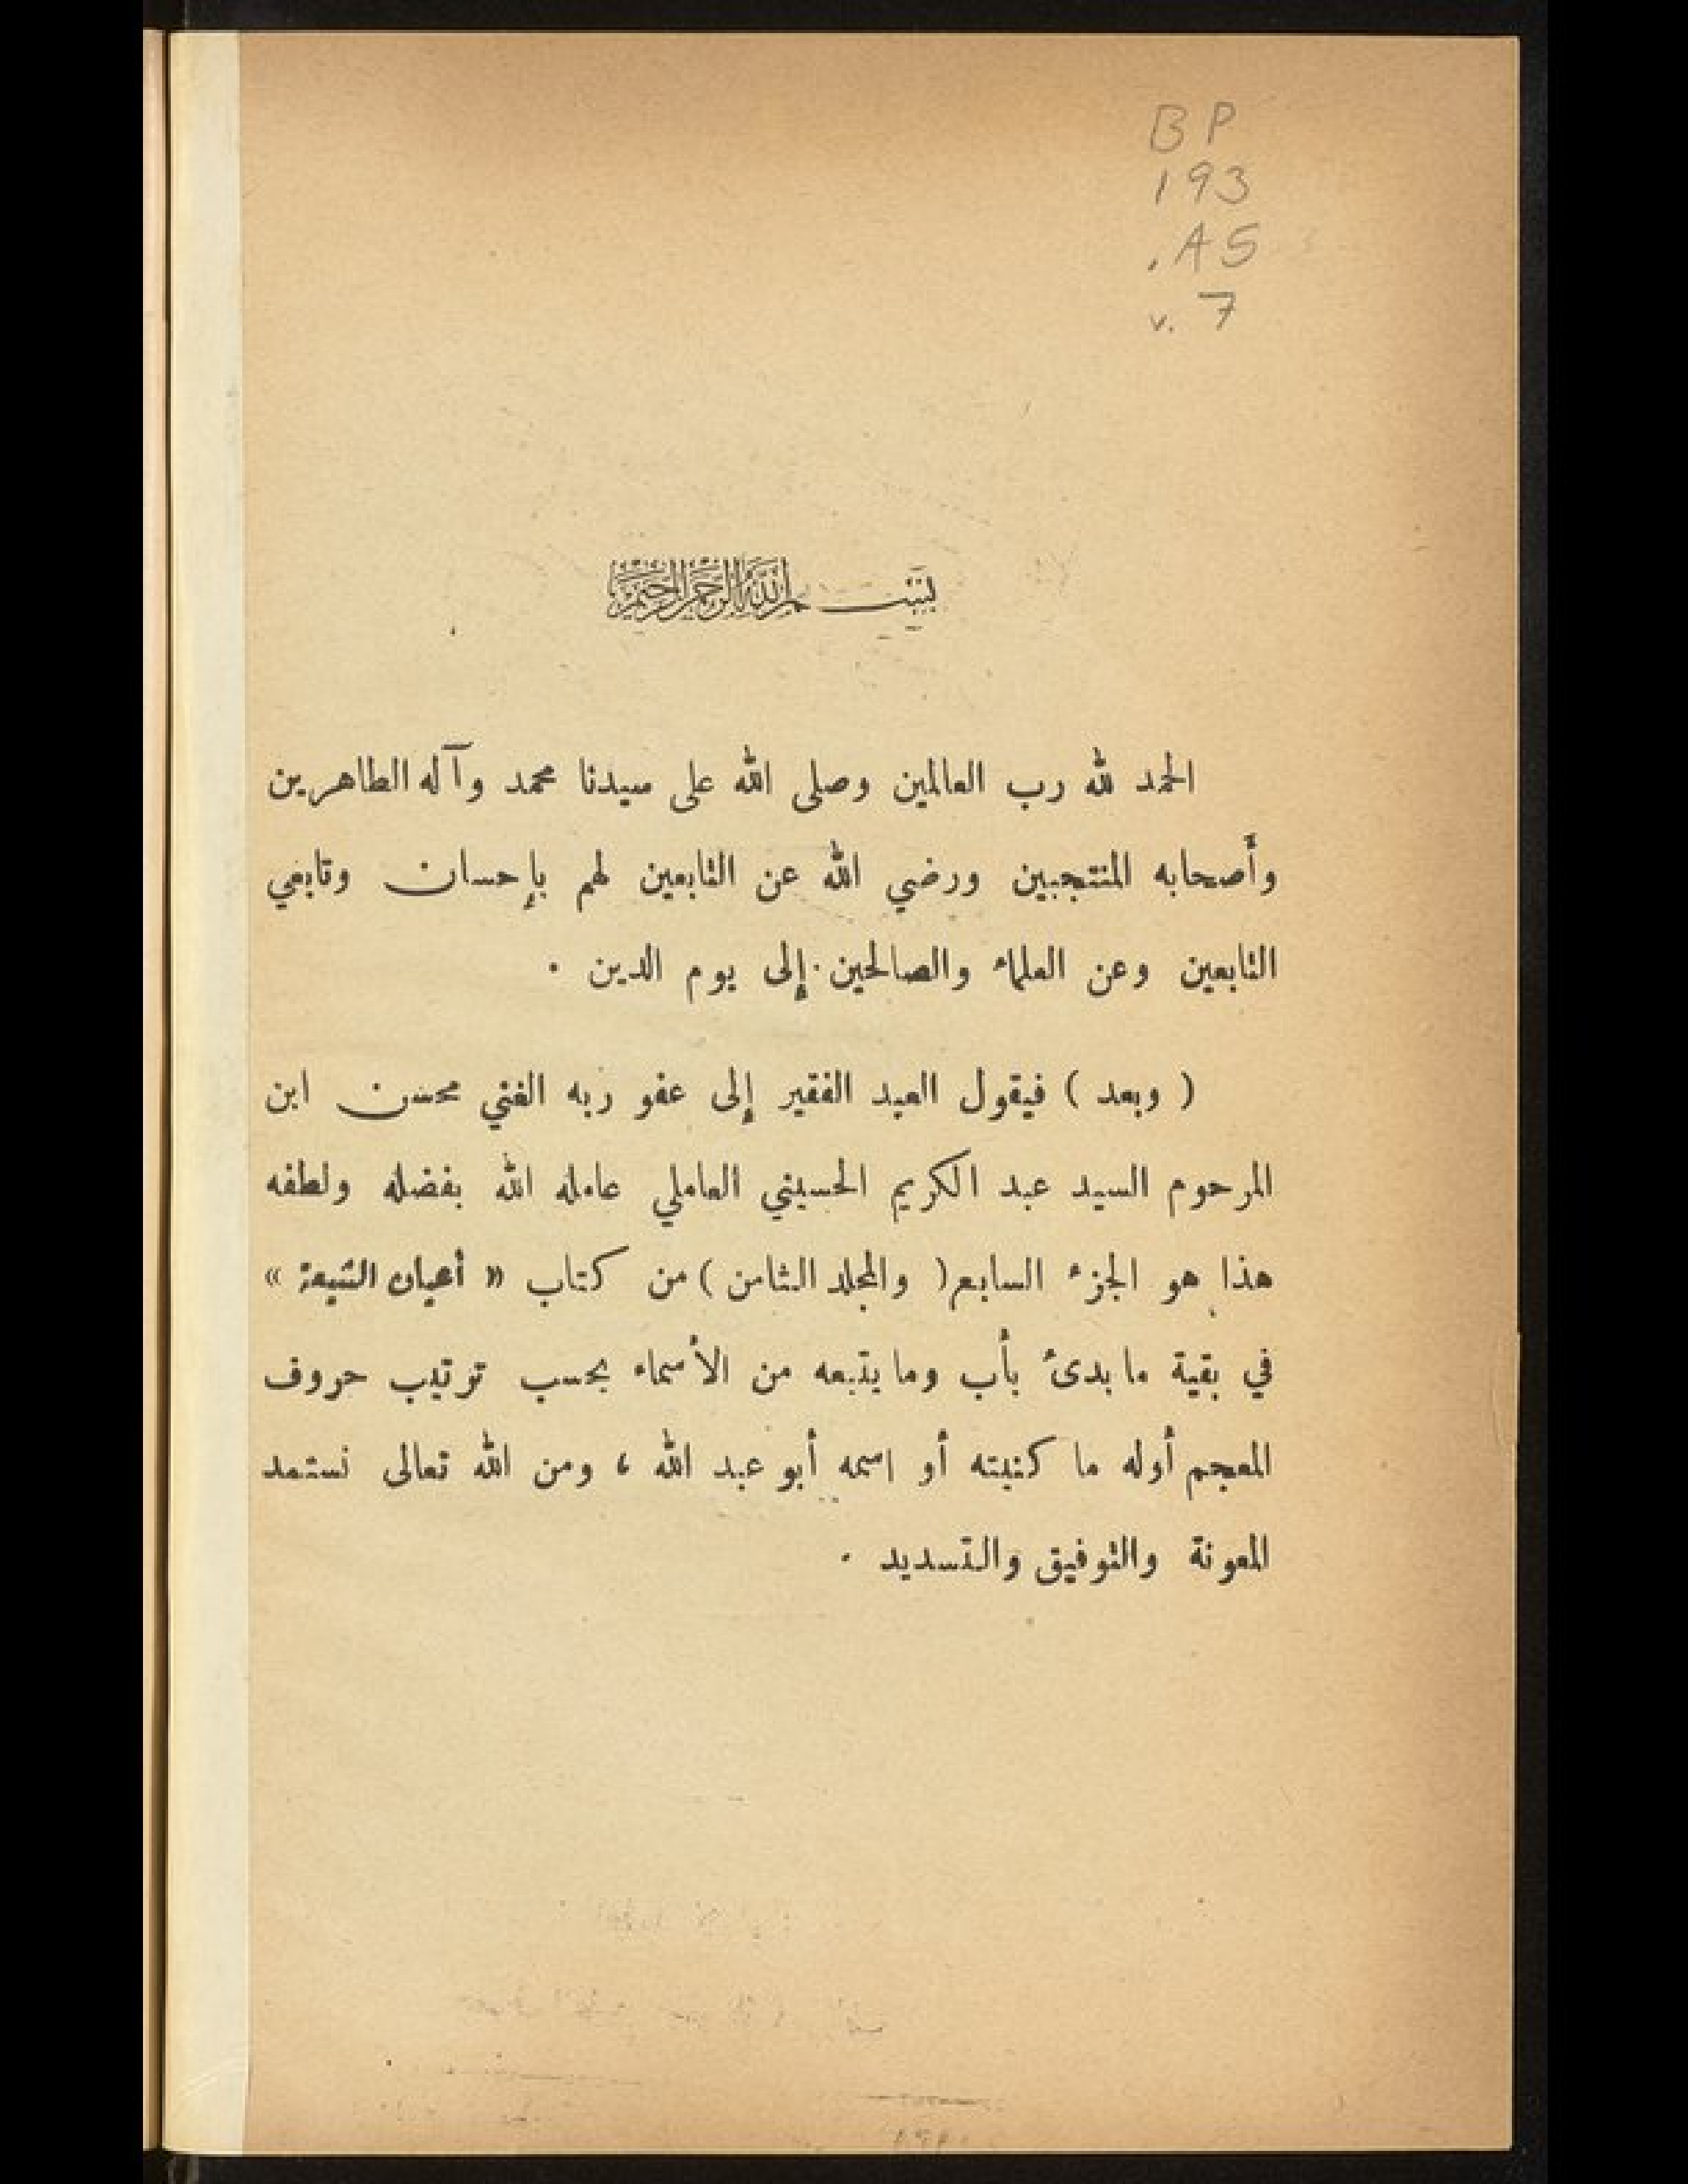 BP
193
.A5
v. 7
بسم الله الرحمن الرحيم
الحمد لله رب العالمين وصلى الله على سيدنا محمد وآله الطاهرين
وأصحابه المنتجبين ورضي الله عن التابعين لهم بإحسان وتابعي
التابعين وعن العلماء والصالحين إلى يوم الدين .
( وبعد ) فيقول العبد الفقير إلى عفو ربه الغني محسن ابن
المرحوم السيد عبد الكريم الحسيني العاملي عامله الله بفضله ولطفه
هذا هو الجزء السابع ( والمجلد الثامن ) من كتاب « أعيان الشيعة »
في بقية ما بدئ بأب وما يتبعه من الأسماء بحسب ترتيب حروف
المعجم أوله ما كنيته أو اسمه أبو عبد الله ، ومن الله تعالى نستمد
المعونة والتوفيق والتسديد .